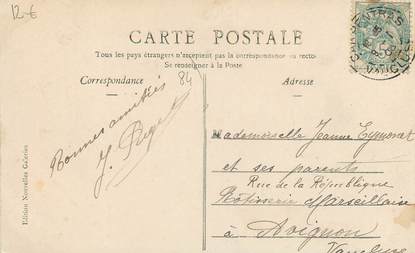 12-€
CARTE POSTALE
Tous les pays étrangers n'acceptent pas la correspondance au recto
Se renseigner à la Poste
Correspondance
84
Adresse
Bonnes amitiés
Mademoiselle Jeanne Eymonat
et ses parents
Rue de la République
Rôtisserie Marseillaise
à Avignon
Vaucluse
Edition Nouvelles Galeries